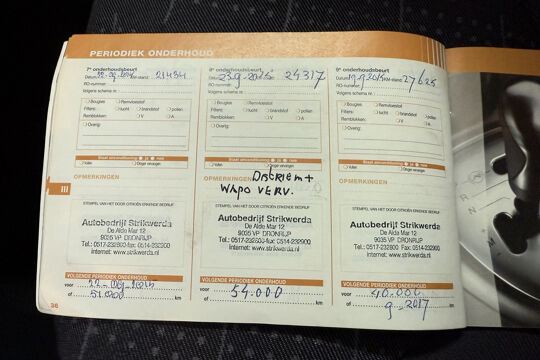 PERIODIEK ONDERHOUD
7e onderhoudsbeurt
Datum: KM-stand: 21434
RO-nummer:
Volgens schema nr.:
Bougies Remvloeistof
Filters: lucht brandstof pollen
Remblokken: V A
Overig:
Staat airconditioning:
Vullen Droger vervangen
OPMERKINGEN
STEMPEL VAN HET DOOR CITROËN ERKENDE BEDRIJF
Autobedrijf Strikwerda
De Alde Mar 12
9035 VP DRONRIJP
Tel.: 0517-232900-fax: 0514-232900
Internet: www.strikwerda.nl
VOLGENDE PERIODIEK ONDERHOUD
voor
of km
8e onderhoudsbeurt
Datum: 23.9.2015 24317
RO-nummer:
Volgens schema nr.:
Bougies Remvloeistof
Filters: lucht brandstof pollen
Remblokken: V A
Overig:
Staat airconditioning:
Vullen Droger vervangen
OPMERKINGEN
WAPO VERV.
STEMPEL VAN HET DOOR CITROËN ERKENDE BEDRIJF
Autobedrijf Strikwerda
De Alde Mar 12
9035 VP DRONRIJP
Tel.: 0517-232900-fax: 0514-232900
Internet: www.strikwerda.nl
VOLGENDE PERIODIEK ONDERHOUD
voor 54.000
of km
9e onderhoudsbeurt
Datum: KM-stand: 27625
RO-nummer:
Volgens schema nr.:
Bougies Remvloeistof
Filters: lucht brandstof pollen
Remblokken: V A
Overig:
Staat airconditioning:
Vullen Droger vervangen
OPMERKINGEN
STEMPEL VAN HET DOOR CITROËN ERKENDE BEDRIJF
Autobedrijf Strikwerda
De Alde Mar 12
9035 VP DRONRIJP
Tel.: 0517-232900-fax: 0514-232900
Internet: www.strikwerda.nl
VOLGENDE PERIODIEK ONDERHOUD
voor 40.000
of 9-2017 km
III
36
R
N